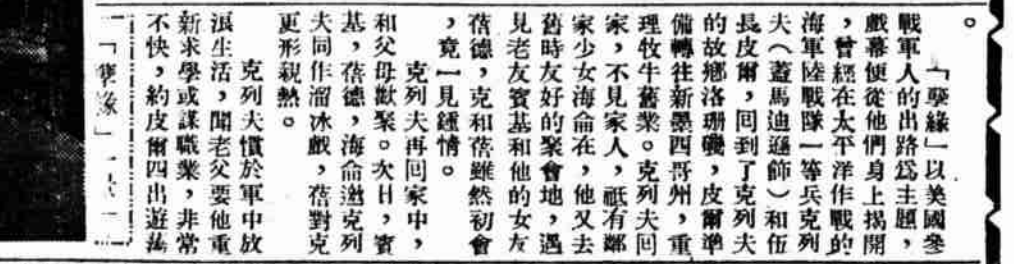 。
「孽緣」以美國參
戰軍人的出路爲主題，
戲幕便從他們身上揭開
，曾經在太平洋作戰的
海軍陸戰隊一等兵克列
夫（蓋馬迪遜飾）和伍
長皮爾，回到了克列夫
的故鄉洛珊磯，皮爾準
備轉往新墨西哥州，重
理牧牛舊業。克列夫回
家，不見家人，祇有鄰
家少女海侖在，他又去
舊時友好的聚會地，遇
見老友賓基和他的女友
蓓德，克和蓓雖然初會
，竟一見鍾情。
克列夫再回家中，
和父母歡聚。次日，賓
基，蓓德，海侖邀克列
夫同作溜冰戲，蓓對克
更形親熱。
克列夫慣於軍中放
浪生活，聞老父要他重
新求學或謀職業，非常
不快，約皮爾四出遊蕩
「孽緣」一